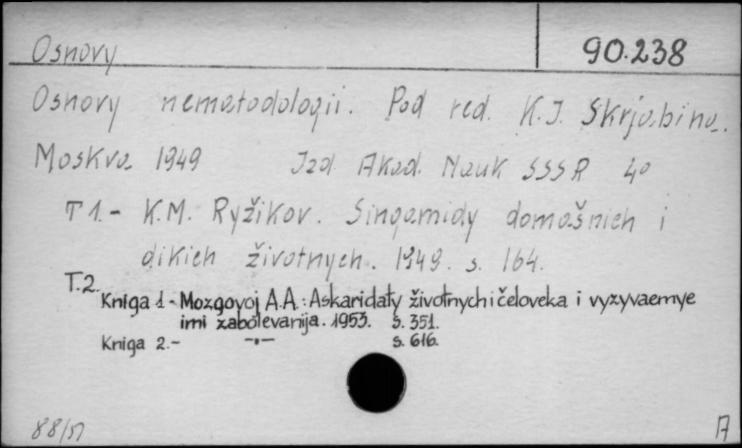 Osnovy
90.238
Osnovy nematodologii. Pod red. K.I. Skrjabina.
Moskva 1949 Izd Akad. Nauk SSSR 4°
T 1.- K.M. Ryžikov. Singamidy domašnich i
dikich životnych. 1949. s. 164.
T.2.
Kniga 1 - Mozgovoj A.A.: Askaridaty životnych i čeloveka i vyzyvaemye
imi zabolevanija. 1953. s. 351.
Kniga 2.- -"- s. 616.
88/51
A